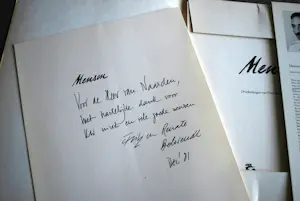 Mensen
Voor de Heer van Naarden,
met hartelijke dank voor
Uw inzet en vele goede wensen
en Renate
Dec '81
Men